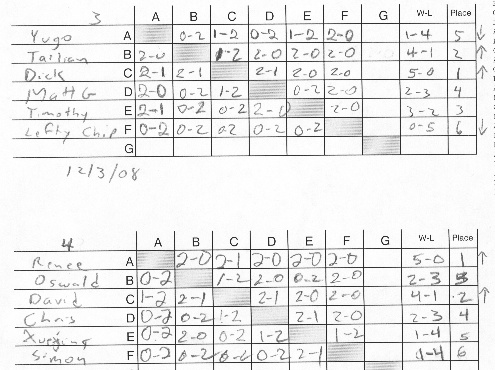 3 A B C D E F G W-L Place
Yugo A 0-2 1-2 0-2 1-2 2-0 1-4 5 ↓
B 2-0 1-2 2-0 2-0 2-0 4-1 2 ↑
Dick C 2-1 2-1 2-1 2-0 2-0 5-0 1 ↑
Matt G D 2-0 0-2 1-2 0-2 2-0 2-3 4
Timothy E 2-1 0-2 0-2 2-0 2-0 3-2 3
Lefty Chip F 0-2 0-2 0-2 0-2 0-2 0-5 6 ↓
G
12/3/08
4 A B C D E F G W-L Place
Renee A 2-0 2-1 2-0 2-0 2-0 5-0 1 ↑
Oswald B 0-2 1-2 2-0 0-2 2-0 2-3 3
David C 1-2 2-1 2-1 2-0 2-0 4-1 2 ↑
Chris D 0-2 0-2 1-2 2-1 2-0 2-3 4
E 0-2 2-0 0-2 1-2 1-2 1-4 5
Simon F 0-2 0-2 0-2 0-2 2-1 1-4 6